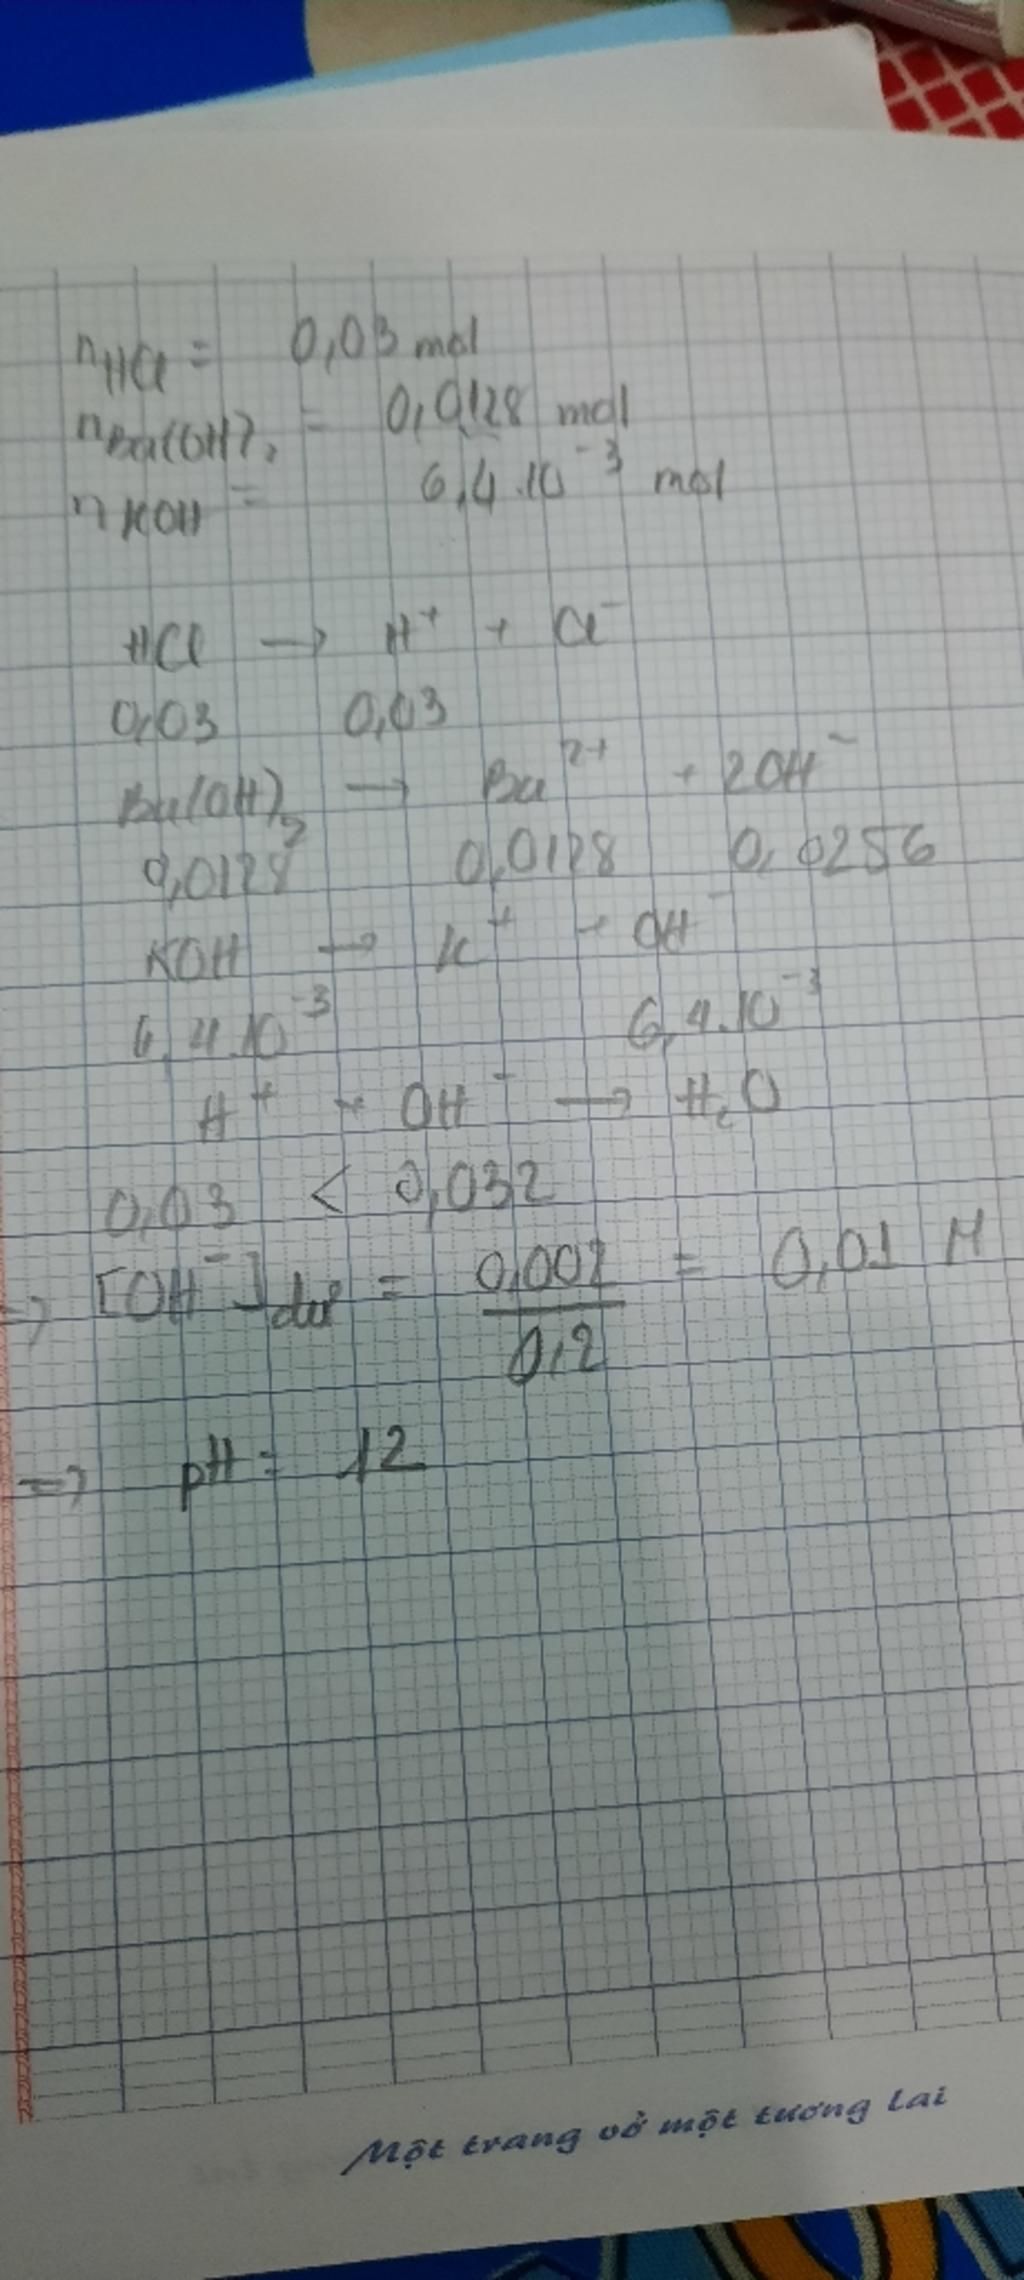 nHCl = 0,03 mol
nBa(OH)2 = 0,0128 mol
nKOH = 6,4.10^-3 mol
HCl → H+ + Cl-
0,03 0,03
Ba(OH)2 → Ba2+ + 2OH-
0,0128 0,0128 0,0256
KOH → K+ + OH-
6,4.10^-3 6,4.10^-3
H+ + OH- → H2O
0,03 < 0,032
=> [OH-]dư = 0,002/0,2 = 0,01 M
=> pH = 12
Một trang vở một tương lai